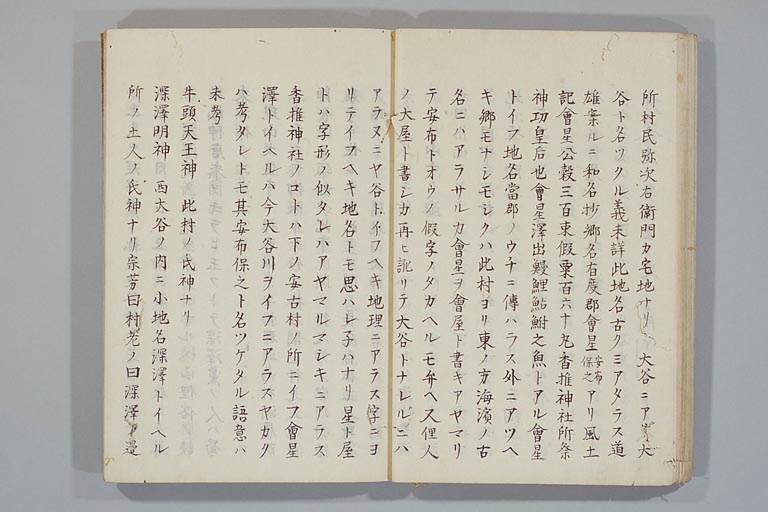 所村民弥次右衛門カ宅地ナリ 大谷ニアリ大
谷ト名ツクル義未詳此地名古クミアタラス道
雄案ルニ和名抄郷名有度郡會星安布保之アリ風土
記會星公穀三百束假粟百六十九香推神社所祭
神功皇后也會星澤出鰻鯉鮎鮒之魚トアル會星
トイフ地名當郡ノウチニ傳ハラス外ニアツヘ
キ郷モナシモシクハ此村ヨリ東ノ方海濱ノ古
名ニハアラサルカ會星ヲ會屋ト書キアヤマリ
テ安布トオウノ假字ノタカヘルモ弁ヘス俚人
ノ大屋ト書シカ再ヒ訛リテ大谷トナレルニハ
アラヌニヤ谷トイフヘキ地理ニアラス字ニヨ
リテイフヘキ地名トモ思ハレ子ハナリ星ト屋
トハ字形ノ似タレハアヤマルマシキニアラス
香推神社ノコトハ下ノ安古村ノ所ニイフ會星
澤トイヘルハ今大谷川ヲイフニアラスヤカク
ハ考タレトモ其安布保之ト名ツケタル語意ハ
未考
牛頭天王神 此村ノ氏神ナリ
深澤明神 西大谷ノ内ニ小地名深澤トイヘル
所ノ土人ノ氏神ナリ宗芳曰村老ノ曰深澤ノ邉